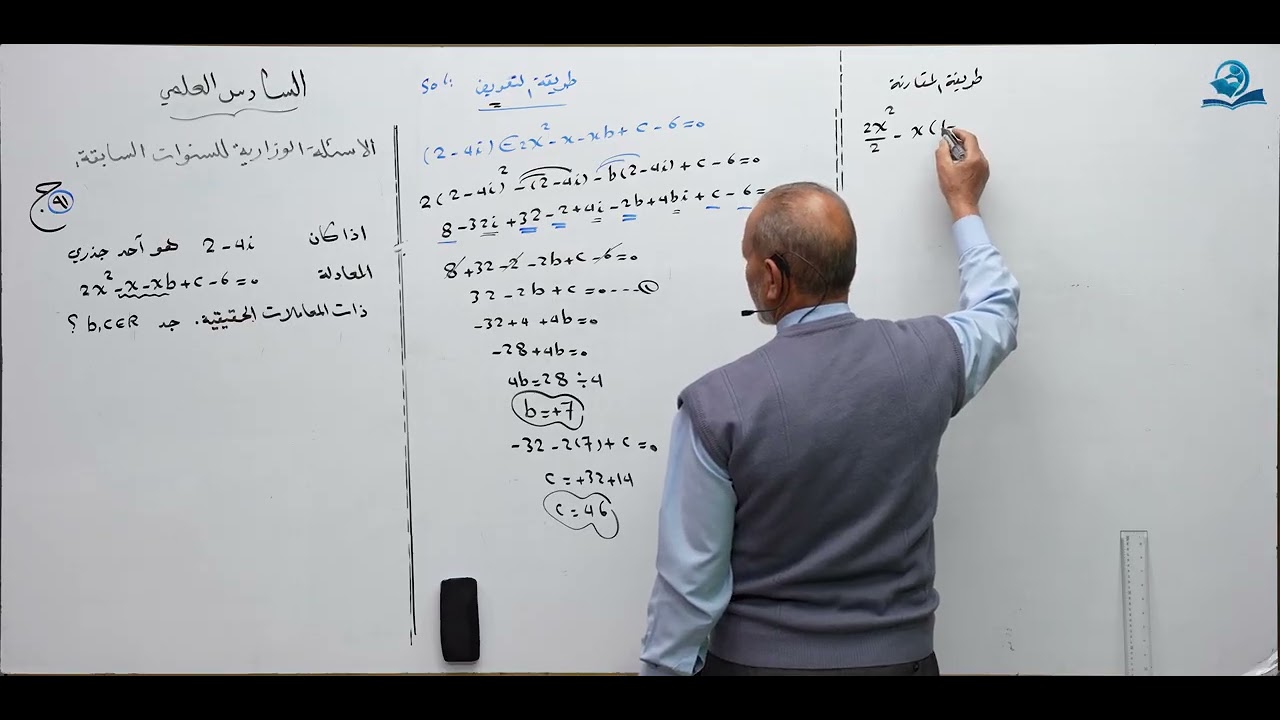 السادس العلمي
الاسئلة الوزارية للسنوات السابقة.
ج ٩١
اذا كان 2-4i هو أحد جذري
المعادلة 2x²-x-xb+c-6=0
ذات المعاملات الحقيقية. جد b,c∈R ؟
Sol: طريقة التعويض
(2-4i)∈2x²-x-xb+c-6=0
2(2-4i)²-(2-4i)-b(2-4i)+c-6=0
8-32i+32-2+4i-2b+4bi+c-6=
8+32-2-2b+c-6=0
32-2b+c=0---①
-32+4+4b=0
-28+4b=0
4b=28÷4
b=+7
-32-2(7)+c=0
c=+32+14
c=46
طريقة المقارنة
2x²/2 - x(